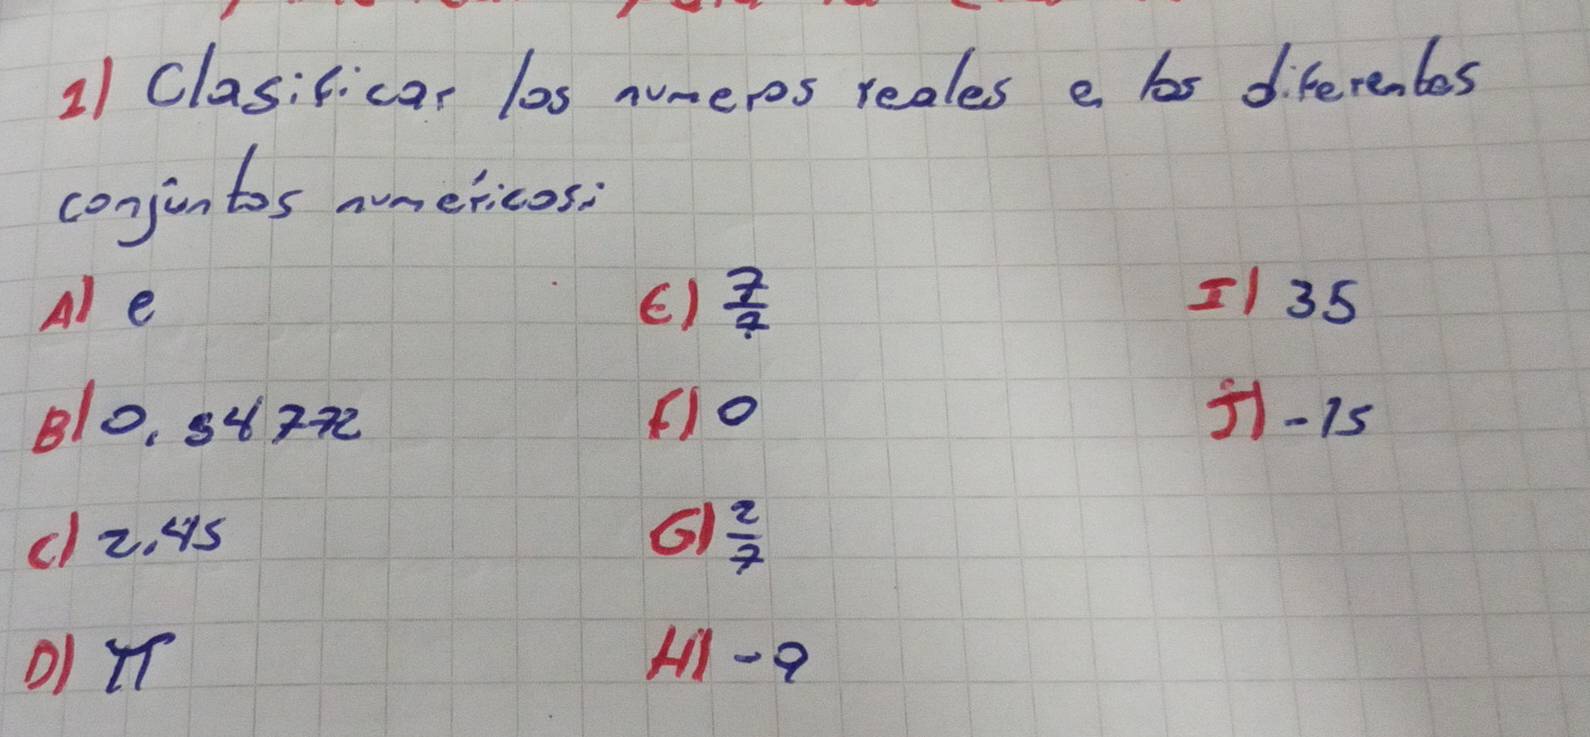 1) Clasificar los numeros reales e los diferentes
conjuntos numéricos:
A) e
E) 7/7
I) 35
B) 0.54772
F) 0
J) -15
C) 2.45
G) 2/7
D) π
H) -9